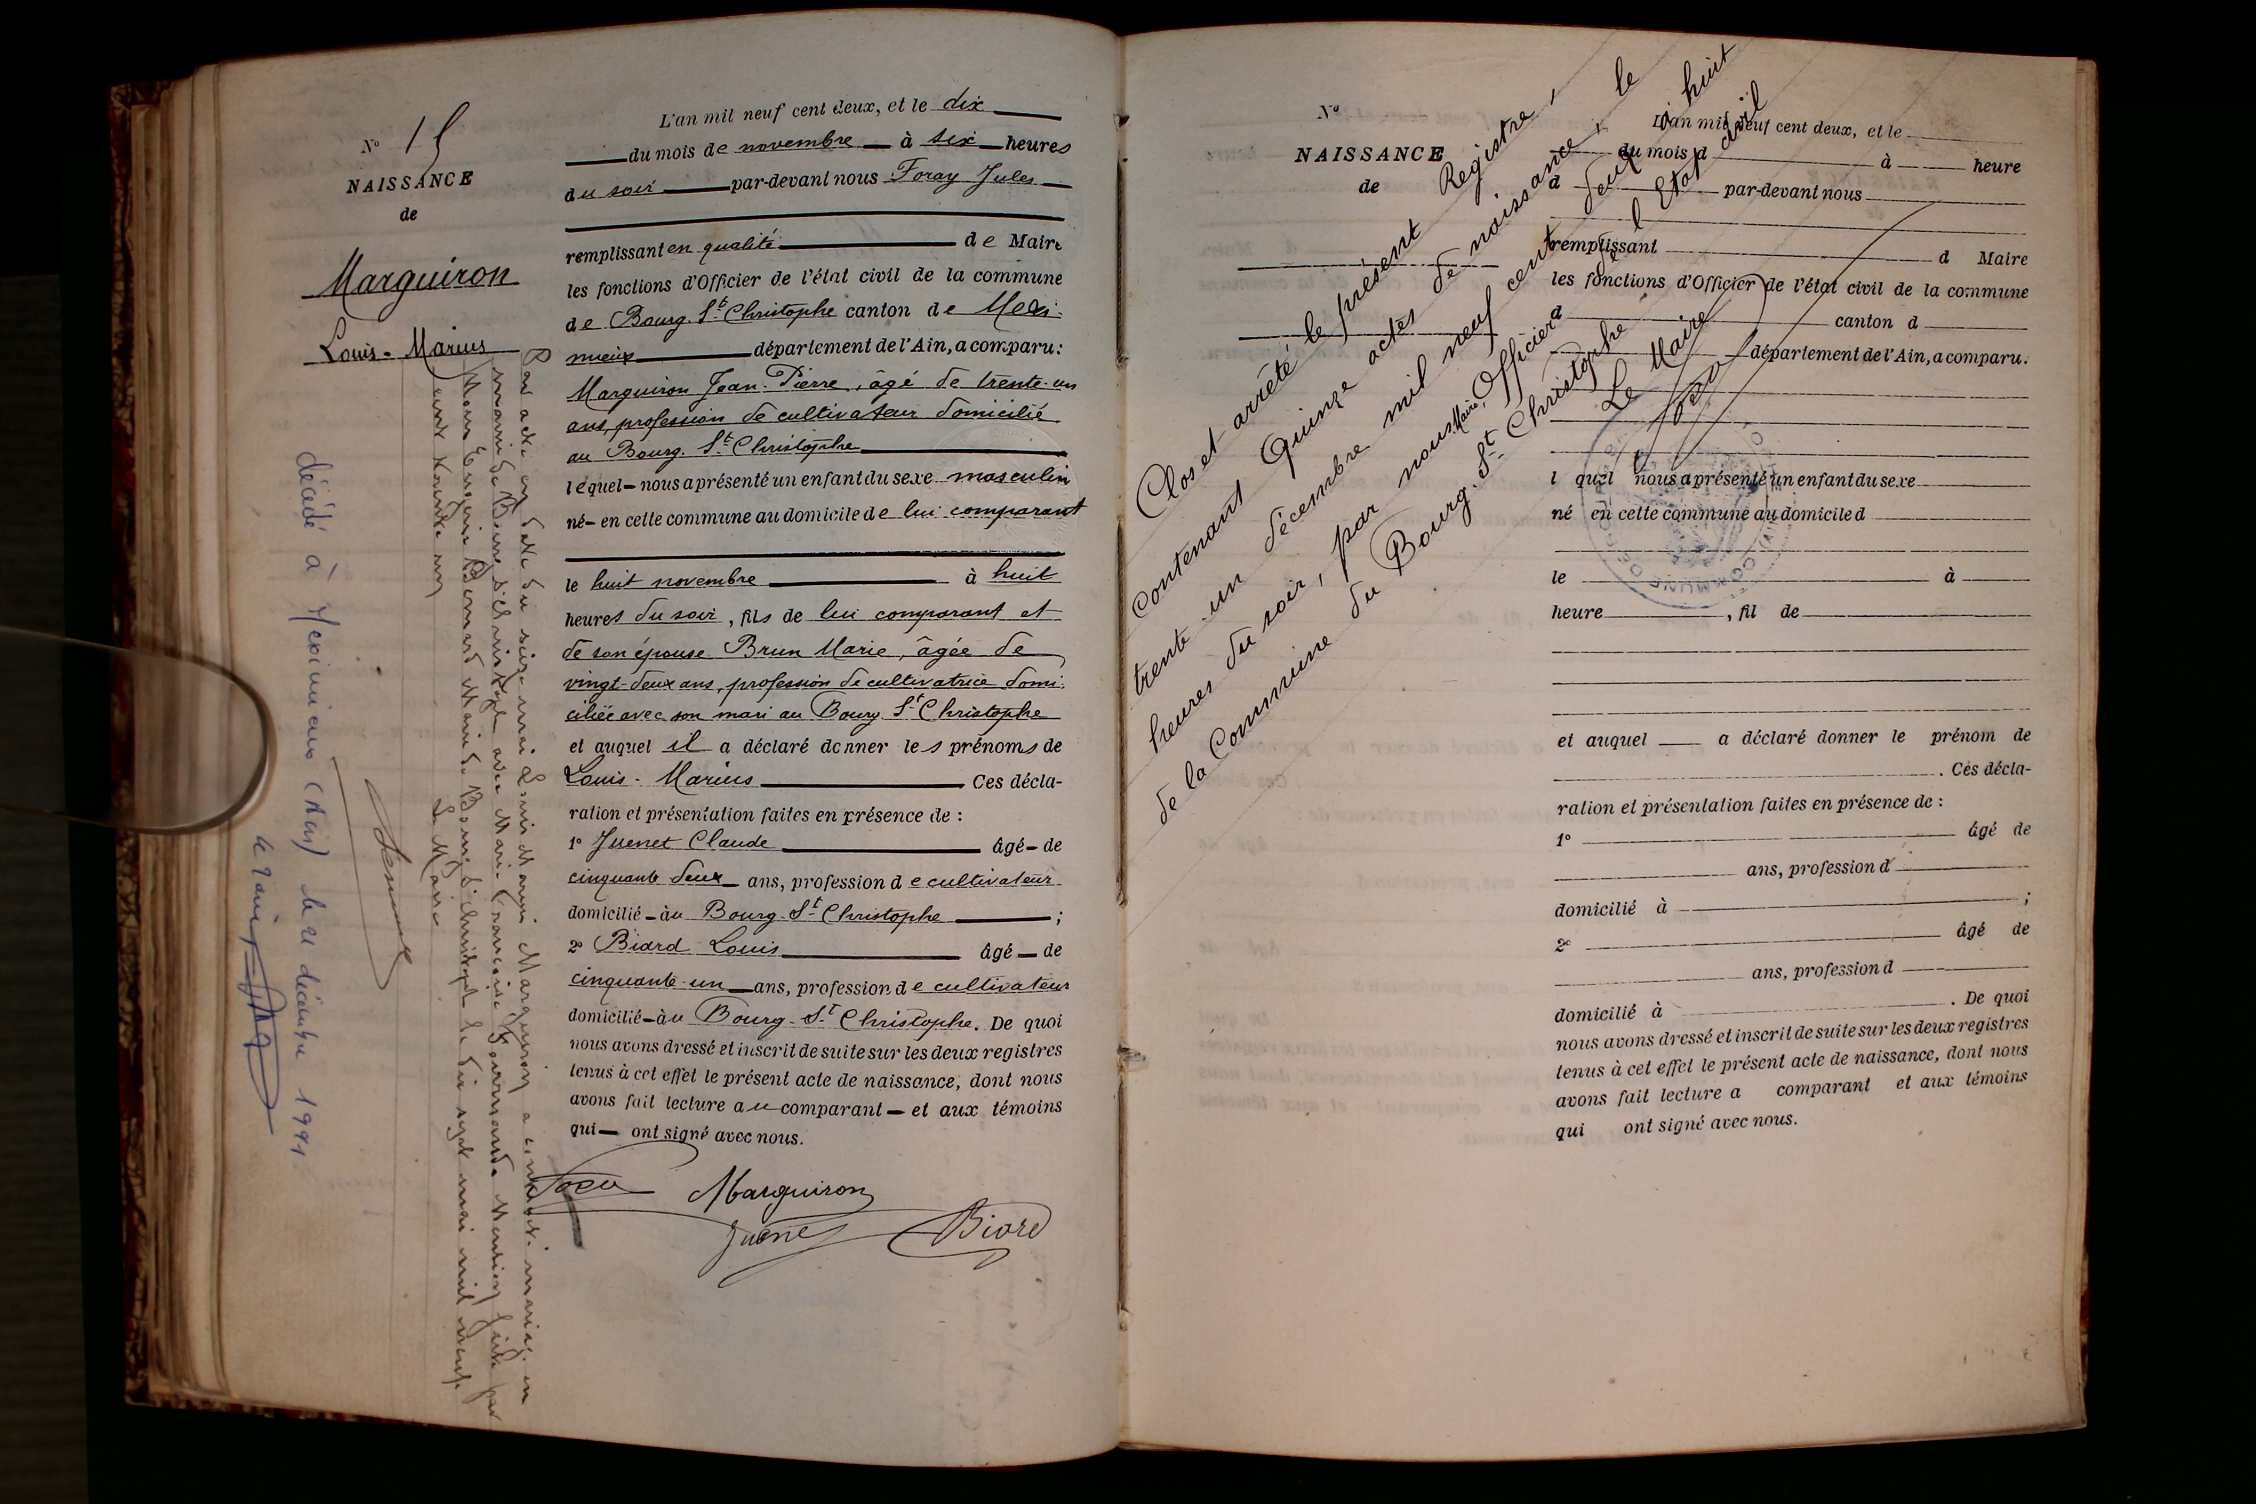 N° 15
NAISSANCE
de
Marguiron
Louis-Marius
L'an mil neuf cent deux, et le dix
du mois de novembre à six heures
du soir par-devant nous Foray Jules
remplissant en qualité de Maire
les fonctions d'Officier de l'état civil de la commune
de Bourg. St Christophe canton de Mexi-
mieux département de l'Ain, a comparu:
Marguiron Jean-Pierre, âgé de trente-un
ans, profession de cultivateur domicilié
au Bourg. St Christophe
lequel nous a présenté un enfant du sexe masculin
né en cette commune au domicile de lui comparant
le huit novembre à huit
heures du soir, fils de lui comparant et
de son épouse Brun Marie, âgée de
vingt-deux ans, profession de cultivatrice domi-
ciliée avec son mari au Bourg St Christophe
et auquel il a déclaré donner les prénoms de
Louis-Marius Ces décla-
ration et présentation faites en présence de :
1° Juenet Claude âgé de
cinquante deux ans, profession de cultivateur
domicilié au Bourg-St Christophe ;
2° Biard Louis âgé de
cinquante-un ans, profession de cultivateur
domicilié au Bourg-St Christophe. De quoi
nous avons dressé et inscrit de suite sur les deux registres
tenus à cet effet le présent acte de naissance, dont nous
avons fait lecture au comparant et aux témoins
qui ont signé avec nous.
Marguiron
Biard
Par acte en date du seize mai Louis Marius Marguiron a contracté mariage en
mairie de Bourg St Christophe avec Marie Françoise Mention faite par
Nous Eugène Maire de Bourg St Christophe le dix sept mai mil neuf
cent trente
Le Maire
décédé à Meximieux (Ain) le 21 décembre 1991.
Le Maire,
N°
NAISSANCE
de
L'an mil neuf cent deux, et le
du mois d à heure
d par-devant nous
remplissant d Maire
les fonctions d'Officier de l'état civil de la commune
d canton d
département de l'Ain, a comparu.
l quel nous a présenté un enfant du sexe
né en cette commune au domicile d
le à
heure , fil de
et auquel a déclaré donner le prénom de
. Ces décla-
ration et présentation faites en présence de :
1° âgé de
ans, profession d
domicilié à ;
2° âgé de
ans, profession d
domicilié à . De quoi
nous avons dressé et inscrit de suite sur les deux registres
tenus à cet effet le présent acte de naissance, dont nous
avons fait lecture a comparant et aux témoins
qui ont signé avec nous.
Clos et arrêté le présent Registre,
contenant Quinze actes de naissance, le
trente-un décembre mil neuf cent deux à huit
heures du soir, par nous Maire, Officier de l'Etat civil
de la Commune du Bourg-St-Christophe
Le Maire